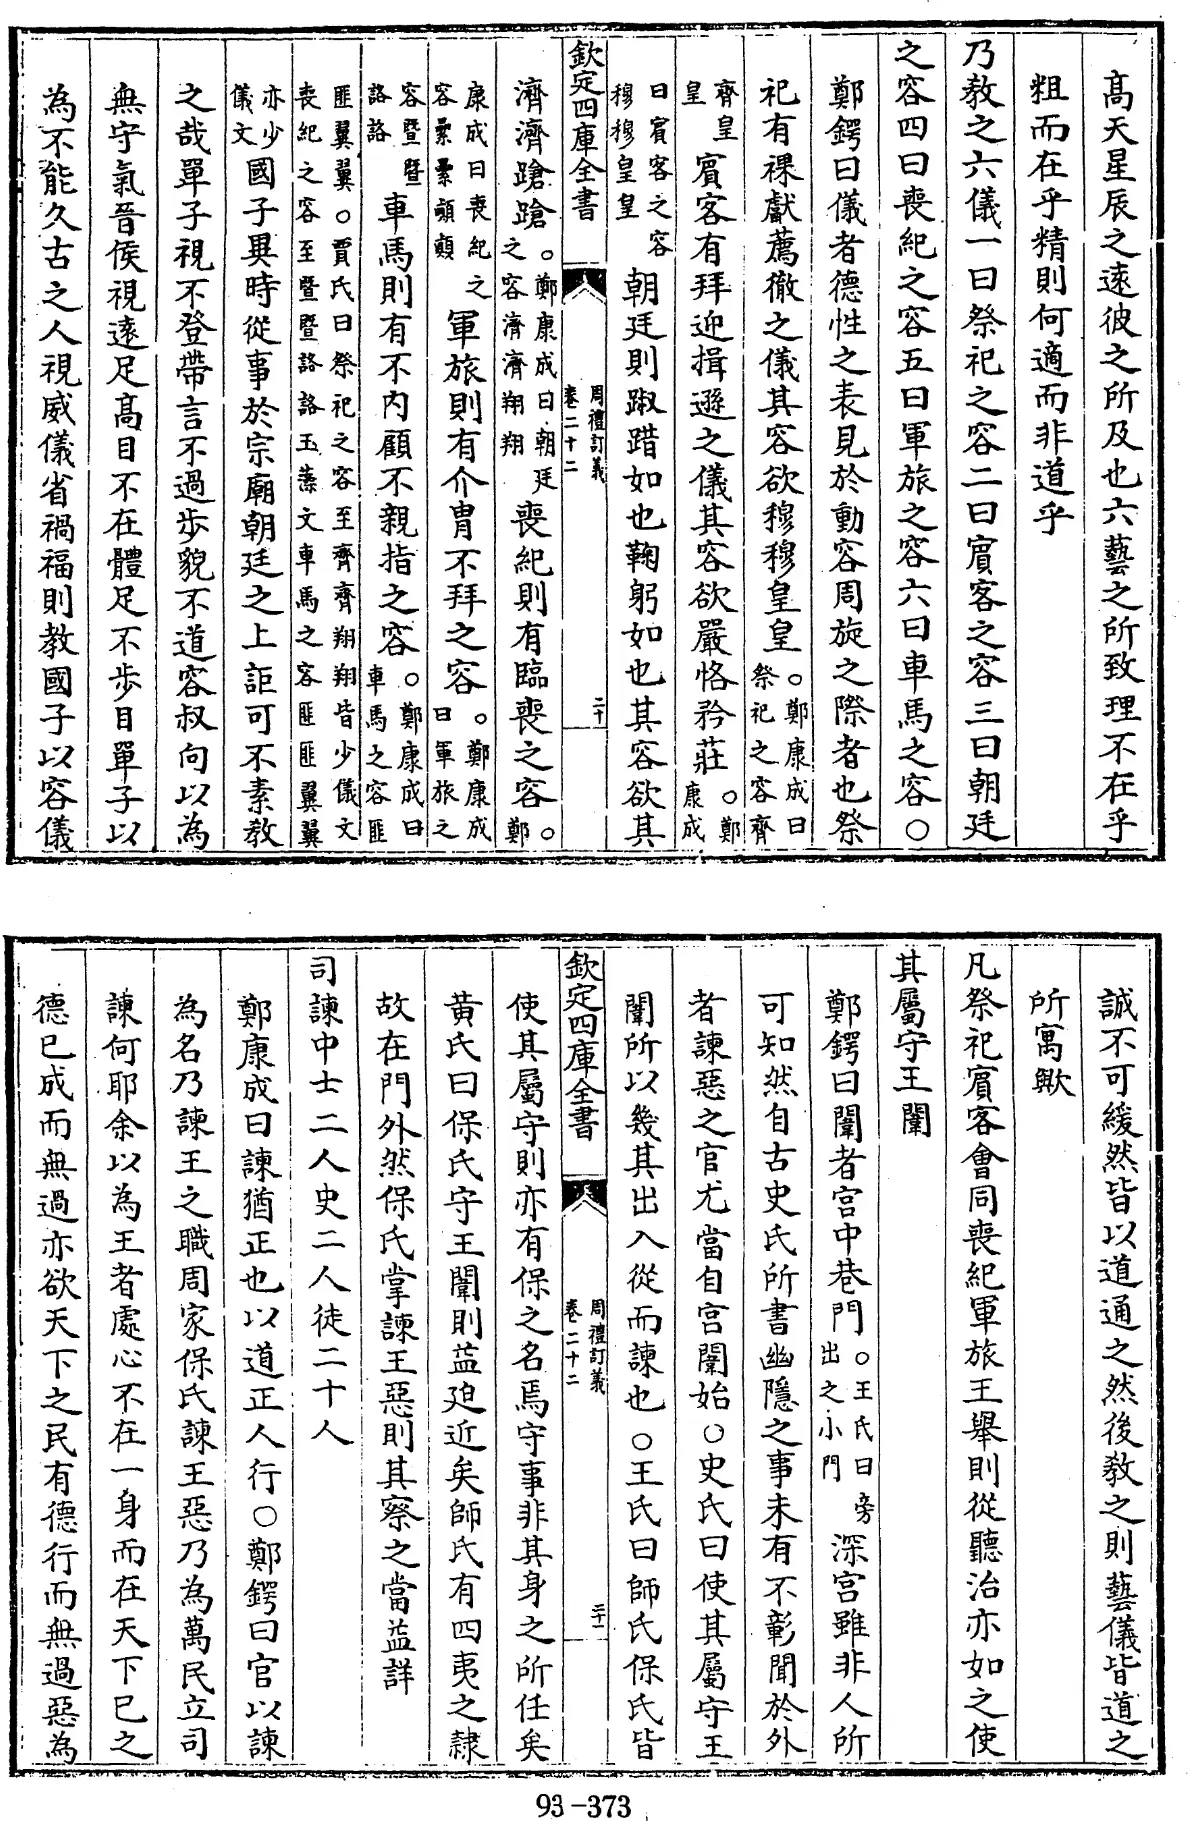 高天星辰之遠彼之所及也六藝之所致理不在乎
粗而在乎精則何適而非道乎
乃教之六儀一曰祭祀之容二曰賔客之容三曰朝廷
之容四曰喪紀之容五曰軍旅之容六曰車馬之容○
鄭鍔曰儀者德性之表見於動容周旋之際者也祭
祀有祼獻薦徹之儀其容欲穆穆皇皇○鄭康成曰祭祀之容齊
齊皇皇賔客有拜迎揖遜之儀其容欲嚴恪矜莊○鄭康成
曰賔客之容穆穆皇皇朝廷則踧踖如也鞠躬如也其容欲其
欽定四庫全書 周禮訂義卷二十二 二十
濟濟蹌蹌○鄭康成曰朝廷之容濟濟翔翔喪紀則有臨喪之容○鄭
康成曰喪紀之容纍纍顛顛軍旅則有介胄不拜之容○鄭康成曰軍旅之
容暨暨詻詻車馬則有不内顧不親指之容○鄭康成曰車馬之容匪
匪翼翼○賈氏曰祭祀之容至齊齊翔翔皆少儀文喪紀之容至暨暨詻詻玉藻文車馬之容匪匪翼翼
亦少儀文國子異時從事於宗廟朝廷之上詎可不素教
之哉單子視不登帶言不過步貌不道容叔向以為
無守氣晉侯視遠足高目不在體足不步目單子以
為不能久古之人視威儀省禍福則教國子以容儀
誠不可緩然皆以道通之然後教之則藝儀皆道之
所寓歟
凡祭祀賔客會同喪紀軍旅王舉則從聽治亦如之使
其屬守王闈
鄭鍔曰闈者宫中巷門○王氏曰旁出之小門深宫雖非人所
可知然自古史氏所書幽隱之事未有不彰聞於外
者諫惡之官尤當自宫闈始○史氏曰使其屬守王
闈所以幾其出入從而諫也○王氏曰師氏保氏皆
欽定四庫全書 周禮訂義卷二十二 二十一
使其屬守則亦有保之名焉守事非其身之所任矣
黄氏曰保氏守王闈則益迫近矣師氏有四夷之隸
故在門外然保氏掌諫王惡則其察之當益詳
司諫中士二人史二人徒二十人
鄭康成曰諫猶正也以道正人行○鄭鍔曰官以諫
為名乃諫王之職周家保氏諫王惡乃為萬民立司
諫何耶余以為王者處心不在一身而在天下已之
德已成而無過亦欲天下之民有德行而無過惡為
93-373